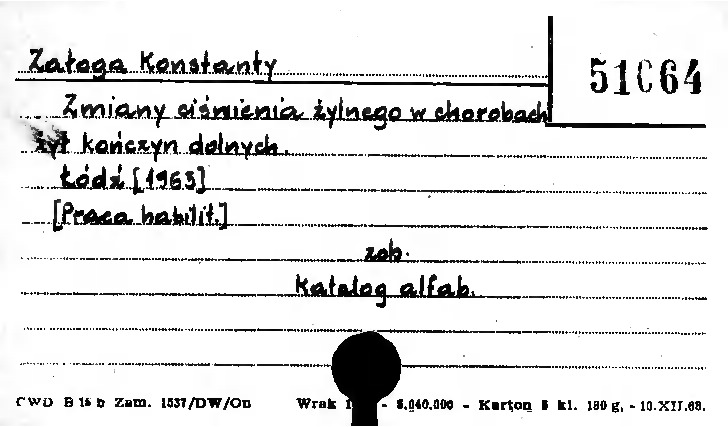 Załoga Konstanty
51064
Zmiany ciśnienia żylnego w chorobach
żył kończyn dolnych.
Łódź [1963]
[Praca habilit.]
zob.
Katalog alfab.
CWD B 15 b Zam. 1537/DW/On Wrak - 5.040.000 - Karton 5 kl. 180 g, - 10.XII.68.